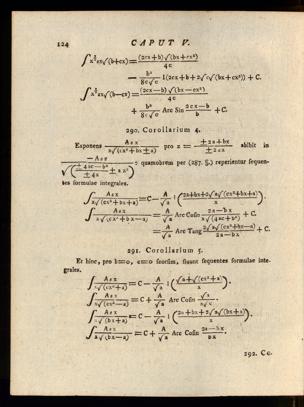 124 CAPUT V.
∫x^{1/2}∂x√(b+cx)=((2cx+b)√(bx+cx²))/(4c)
− b²/(8c√c) l(2cx+b+2√c√(bx+cx²)) + C.
∫x^{1/2}∂x√(b−cx)=((2cx−b)√(bx−cx²))/(4c)
+ b²/(8c√c) Arc Sin (2cx−b)/b + C.
290. Corollarium 4.
Exponens A∂x/(x√(cx²+bx±a)) pro z = (±2a+bx)/(±2ax) abibit in
−A∂z/√((±4ac−b²)/(±4a) ± az²) : quamobrem per (287. §.) reperientur sequen-
tes formulae integrales.
∫A∂x/(x√(cx²+bx+a)) = C − A/√a l((2a+bx+2√a√(cx²+bx+a))/x).
∫A∂x/(x√(cx²+bx−a)) = A/√a Arc Cosin (2a−bx)/(x√(4ac+b²)) + C.
= A/√a Arc Tang (2√a√(cx²+bx−a))/(2a−bx) + C.
291. Corollarium 5.
Et hinc, pro b=0, c=0 seorsim, fluunt sequentes formulae inte-
grales.
∫A∂x/(x√(cx²+a)) = C − A/√a l((√a+√(cx²+a))/x).
∫A∂x/(x√(cx²−a)) = C + A/√a Arc Cosin √a/(x√c).
∫A∂x/(x√(bx+a)) = C − A/√a l((2a+bx+2√a√(bx+a))/x).
∫A∂x/(x√(bx−a)) = C + A/√a Arc Cosin (2a−bx)/(bx).
292. Co-